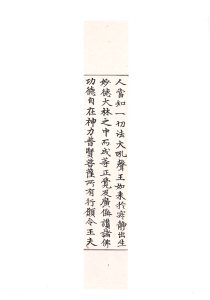 人當知一切法大吼聲王如来於寂靜出生
妙德大林之中而成等正覺及廣脩諸佛
功德自在神力普賢菩薩所有行願令王夫